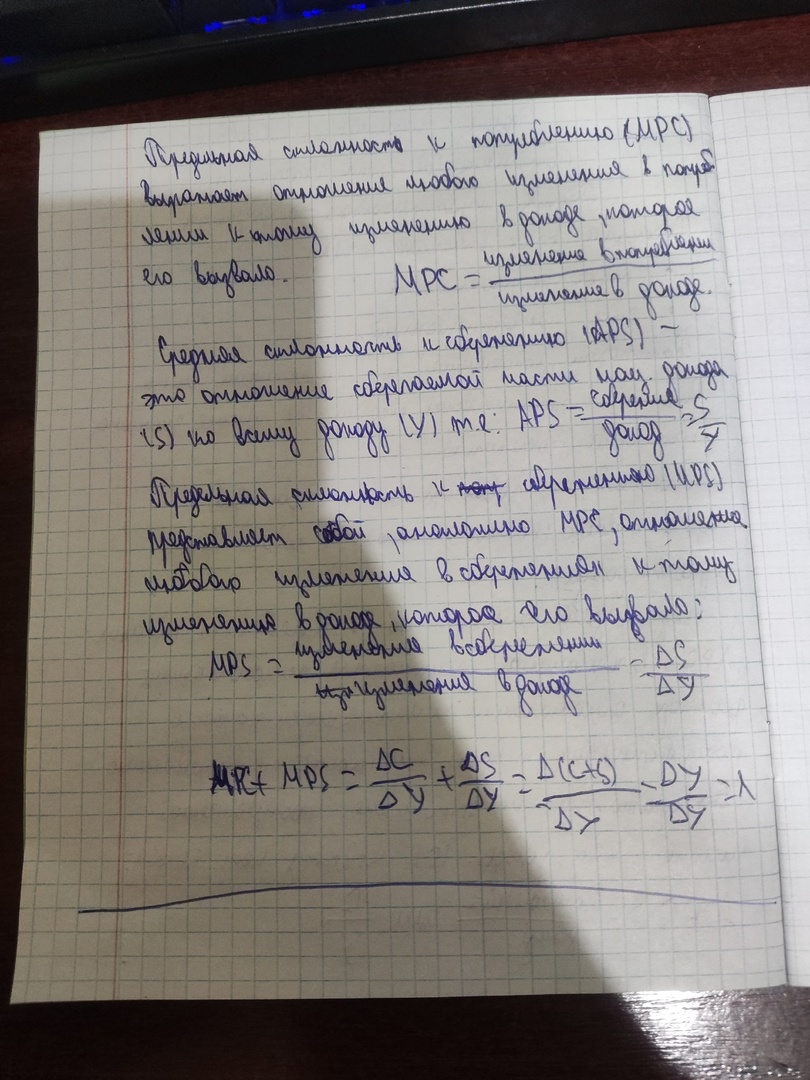 Предельная склонность к потреблению (MPC)
выражает отношение любого изменения в потреб
лении к тому изменению в доходе, которое
его вызвало. MPC = изменение в потреблении / изменение в доходе.
Средняя склонность к сбережению (APS) –
это отношение сберегаемой части нац. дохода
(S) ко всему доходу (Y) т.е: APS = сбережение / доход = S / Y
Предельная склонность к сбережению (MPS)
представляет собой, аналогично MPC, отношение
любого изменения в сбережениях к тому
изменению в доходе, которое его вызвало:
MPS = изменение в сбережении / изменения в доходе = ΔS / ΔY
MPC + MPS = ΔC / ΔY + ΔS / ΔY = Δ(C+S) / ΔY = ΔY / ΔY = 1